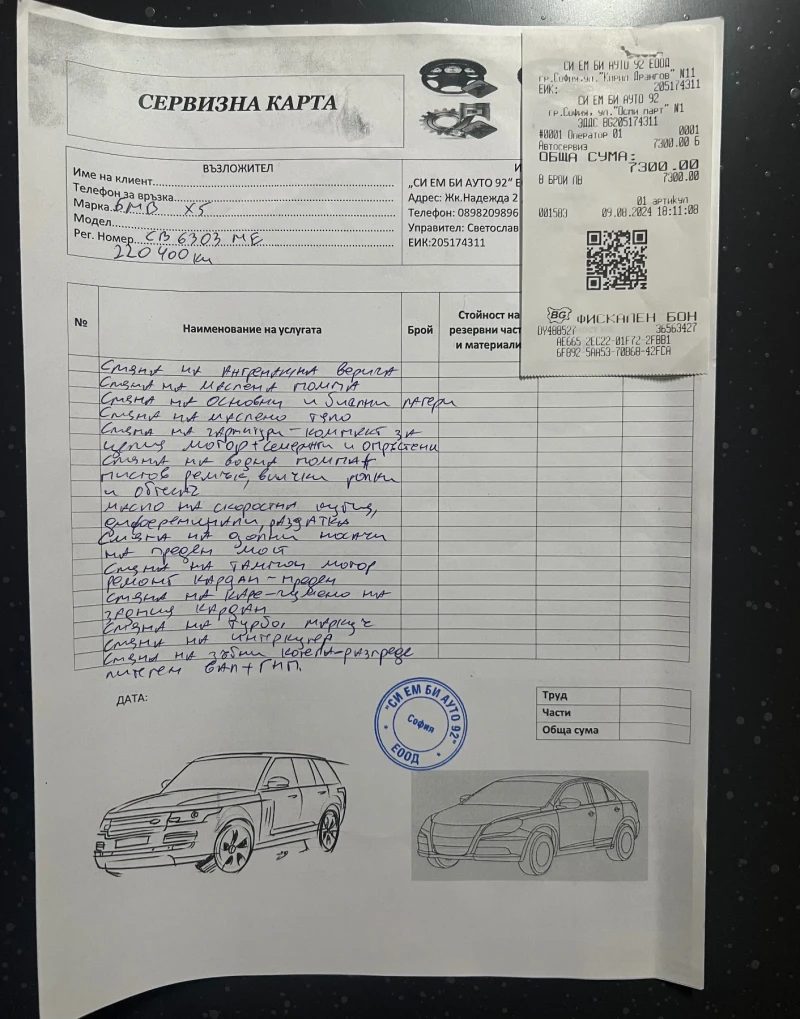 СЕРВИЗНА КАРТА
ВЪЗЛОЖИТЕЛ
Име на клиент
Телефон за връзка
Марка БМВ X5
Модел
Рег. Номер СВ 6303 МЕ
220 400 км
И
„СИ ЕМ БИ АУТО 92“ Е
Адрес: Жк.Надежда 2
Телефон: 0898209896
Управител: Светослав
ЕИК:205174311
СИ ЕМ БИ АУТО 92 ЕООД
гр.София,ул."Кирил Дрангов" N11
ЕИК: 205174311
СИ ЕМ БИ АУТО 92
гр.София, ул. N1
ЗДДС BG205174311
#0001 Оператор 01 0001
Автосервиз 7300.00 Б
ОБЩА СУМА: 7300.00
В БРОЙ ЛВ 7300.00
01 артикул
001583 09.08.2024 18:11:08
BG ФИСКАЛЕН БОН
DY488527 36563427
AE665 2EC22-01F72-2FBB1
6F892 5AA53-70B68-42FCA
№ Наименование на услугата Брой Стойност на резервни част и материали
Смяна на ангренажна верига
Смяна на маслена помпа
Смяна на основни и биелни лагери
Смяна на маслено тяло
Смяна на гарнитури - комплект за
целия мотор + семеринги и
Смяна на водна помпа
пистов ремък, всички ролки
и обтегач
масло на скоростна кутия,
диференциали, раздатка
Смяна на долни носачи
на преден мост
Смяна на тампон мотор
ремонт кардан - преден
Смяна на каре - гумено на
задния кардан
Смяна на турбо маркуч
Смяна на интеркулер
Смяна на зъбни колела - разпреде
лителен вал + ГНП.
ДАТА:
"СИ ЕМ БИ АУТО 92"
София
ЕООД
Труд
Части
Обща сума